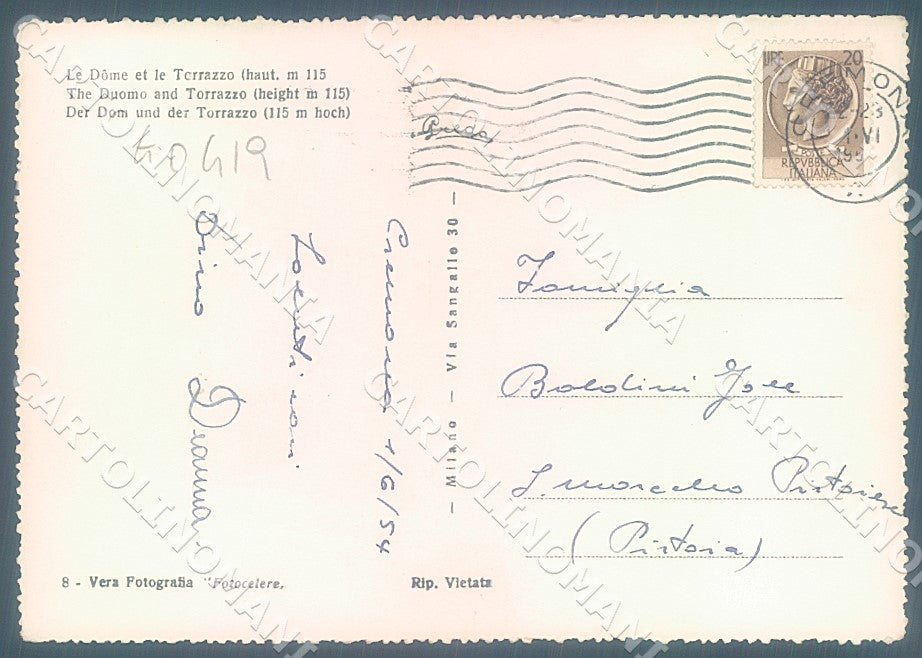 Le Dôme et le Torrazzo (haut. m 115
The Duomo and Torrazzo (height m 115)
Der Dom und der Torrazzo (115 m hoch)
40419
Cremona 1/6/54
Dino Dianna
8 - Vera Fotografia "Fotocelere,
Rip. Vietata
— Milano — Via Sangallo 30 —
LIRE 20
REPVBBLICA
ITALIANA
Famiglia
Baldini Joll
S. Marcello Pistoiese
(Pistoia)
CARTOLINOMANIA